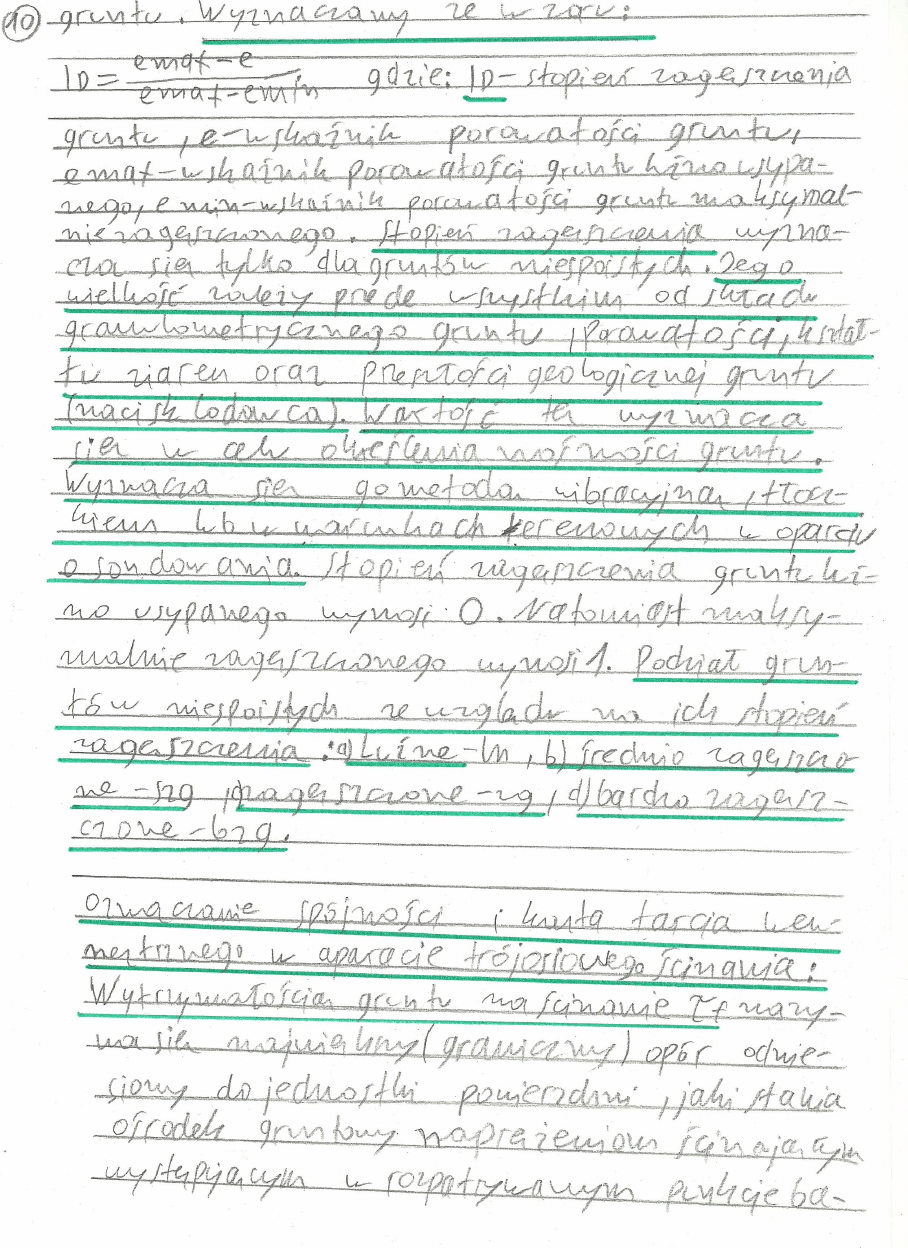 10 gruntu. Wyznaczamy ze wzoru:
ID = emax-e / emax-emin gdzie: ID- stopień zagęszczenia
gruntu, e-wskaźnik porowatości gruntu,
emax-wskaźnik porowatości gruntu luźno usypa-
nego, e min-wskaźnik porowatości gruntu maksymal-
nie zagęszczonego. Stopień zagęszczenia wyzna-
cza się tylko dla gruntów niespoistych. Jego
wielkość zależy prede wszystkim od składu
granulometrycznego gruntu, porowatości, kształ-
tu ziaren oraz przeszłości geologicznej gruntu
(nacisk lodowca). Wartość tą wyznacza
się w celu określenia nośności gruntu.
Wyznacza się go metodą wibracyjną, tłocz-
kiem lub w warunkach terenowych w oparciu
o sondowania. Stopień zagęszczenia gruntu luź-
no usypanego wynosi 0. Natomiast maksy-
malnie zagęszczonego wynosi 1. Podział grun-
tów niespoistych ze względu na ich stopień
zagęszczenia: a) luźne-ln, b) średnio zagęszczo
ne -szg, zagęszczone-zg, d) bardzo zagęsz-
czone-bzg.
Oznaczanie spójności i kąta tarcia wew-
nętrznego w aparacie trójosiowego ścinania:
Wytrzymałością gruntu na ścinanie τf nazy-
wa się największy (graniczny) opór odnie-
siony do jednostki powierzchni, jaki stawia
ośrodek gruntowy naprężeniom ścinającym
występującym w rozpatrywanym punkcie ba-